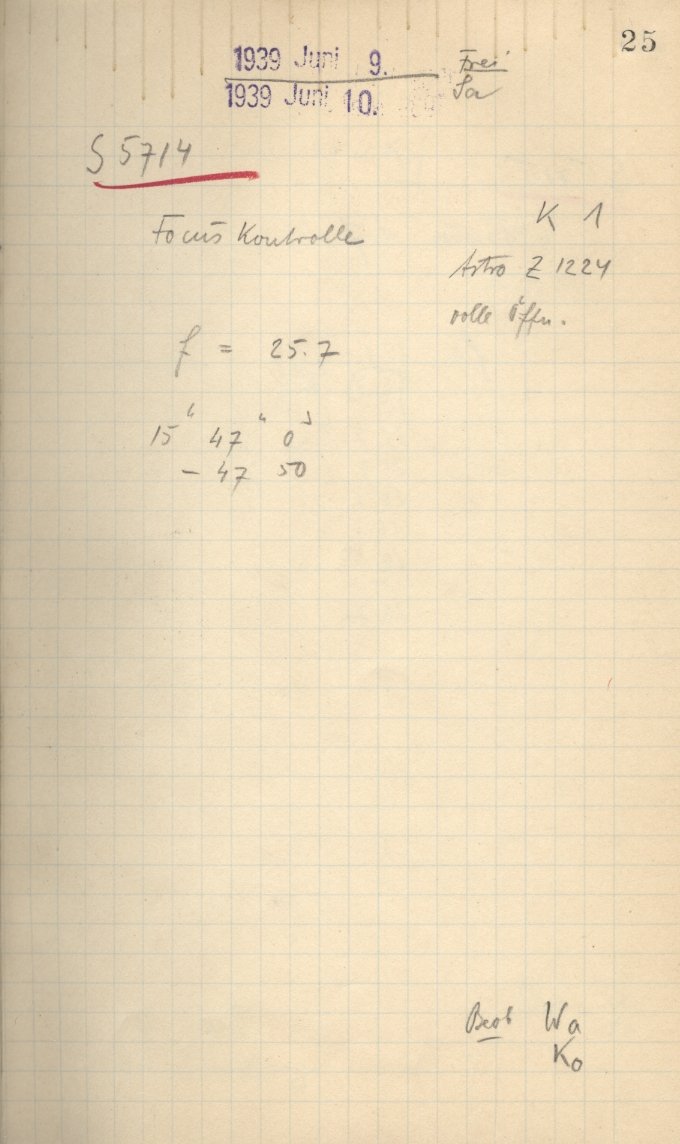 25
1939 Juni 9. Frei
1939 Juni 10. Sa
S 5714
K 1
Focus Kontrolle
Astro Z 1224
volle Öffn.
f = 25.7
15 h 47 m 0 s
– 47 50
Beob Wa
Ko